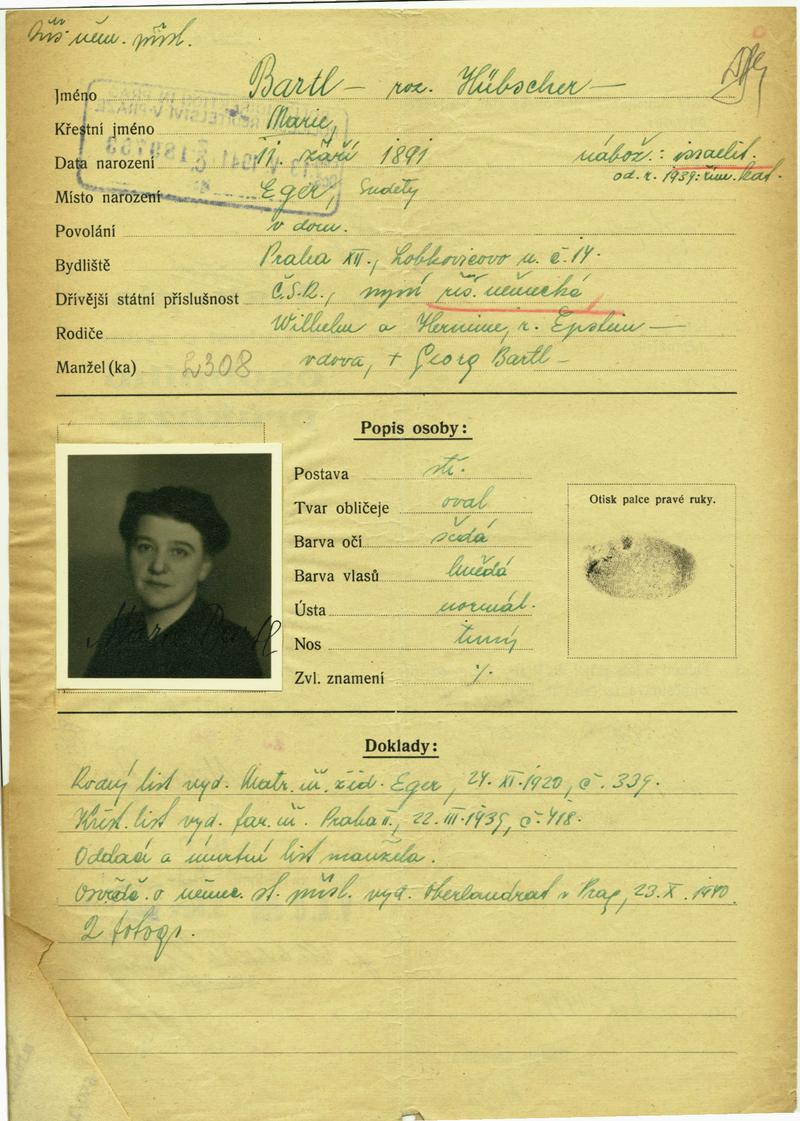 říš. něm. přísl.
Jméno Bartl – roz. Hübscher –
Křestní jméno Marie,
Datum narození 11. září 1891 nábož.: israelit.
od. r. 1939: řím. kat.
Místo narození Eger, Sudety
Povolání v dom.
Bydliště Praha XII., Lobkovicovo n. č. 14.
Dřívější státní příslušnost Č.S.R., nyní říš. německá
Rodiče Wilhelm a Hermine, r. Epstein –
Manžel (ka) 2308 vdova, + Georg Bartl –
Popis osoby:
Postava stř.
Tvar obličeje oval
Barva očí šedá
Barva vlasů hnědá
Ústa normál.
Nos
Zvl. znamení ./.
Otisk palce pravé ruky.
Doklady:
Rodný list vyd. Matr. úř. žid. Eger, 24. XI. 1920, č. 339.
Křest. list vyd. far. úř. Praha II., 22. III. 1939, č. 418.
Oddací a úmrtní list manžela.
Osvědč. o němec. st. přísl. vyd. Oberlandrat v Prag, 23. X. 1940.
2 fotogr.